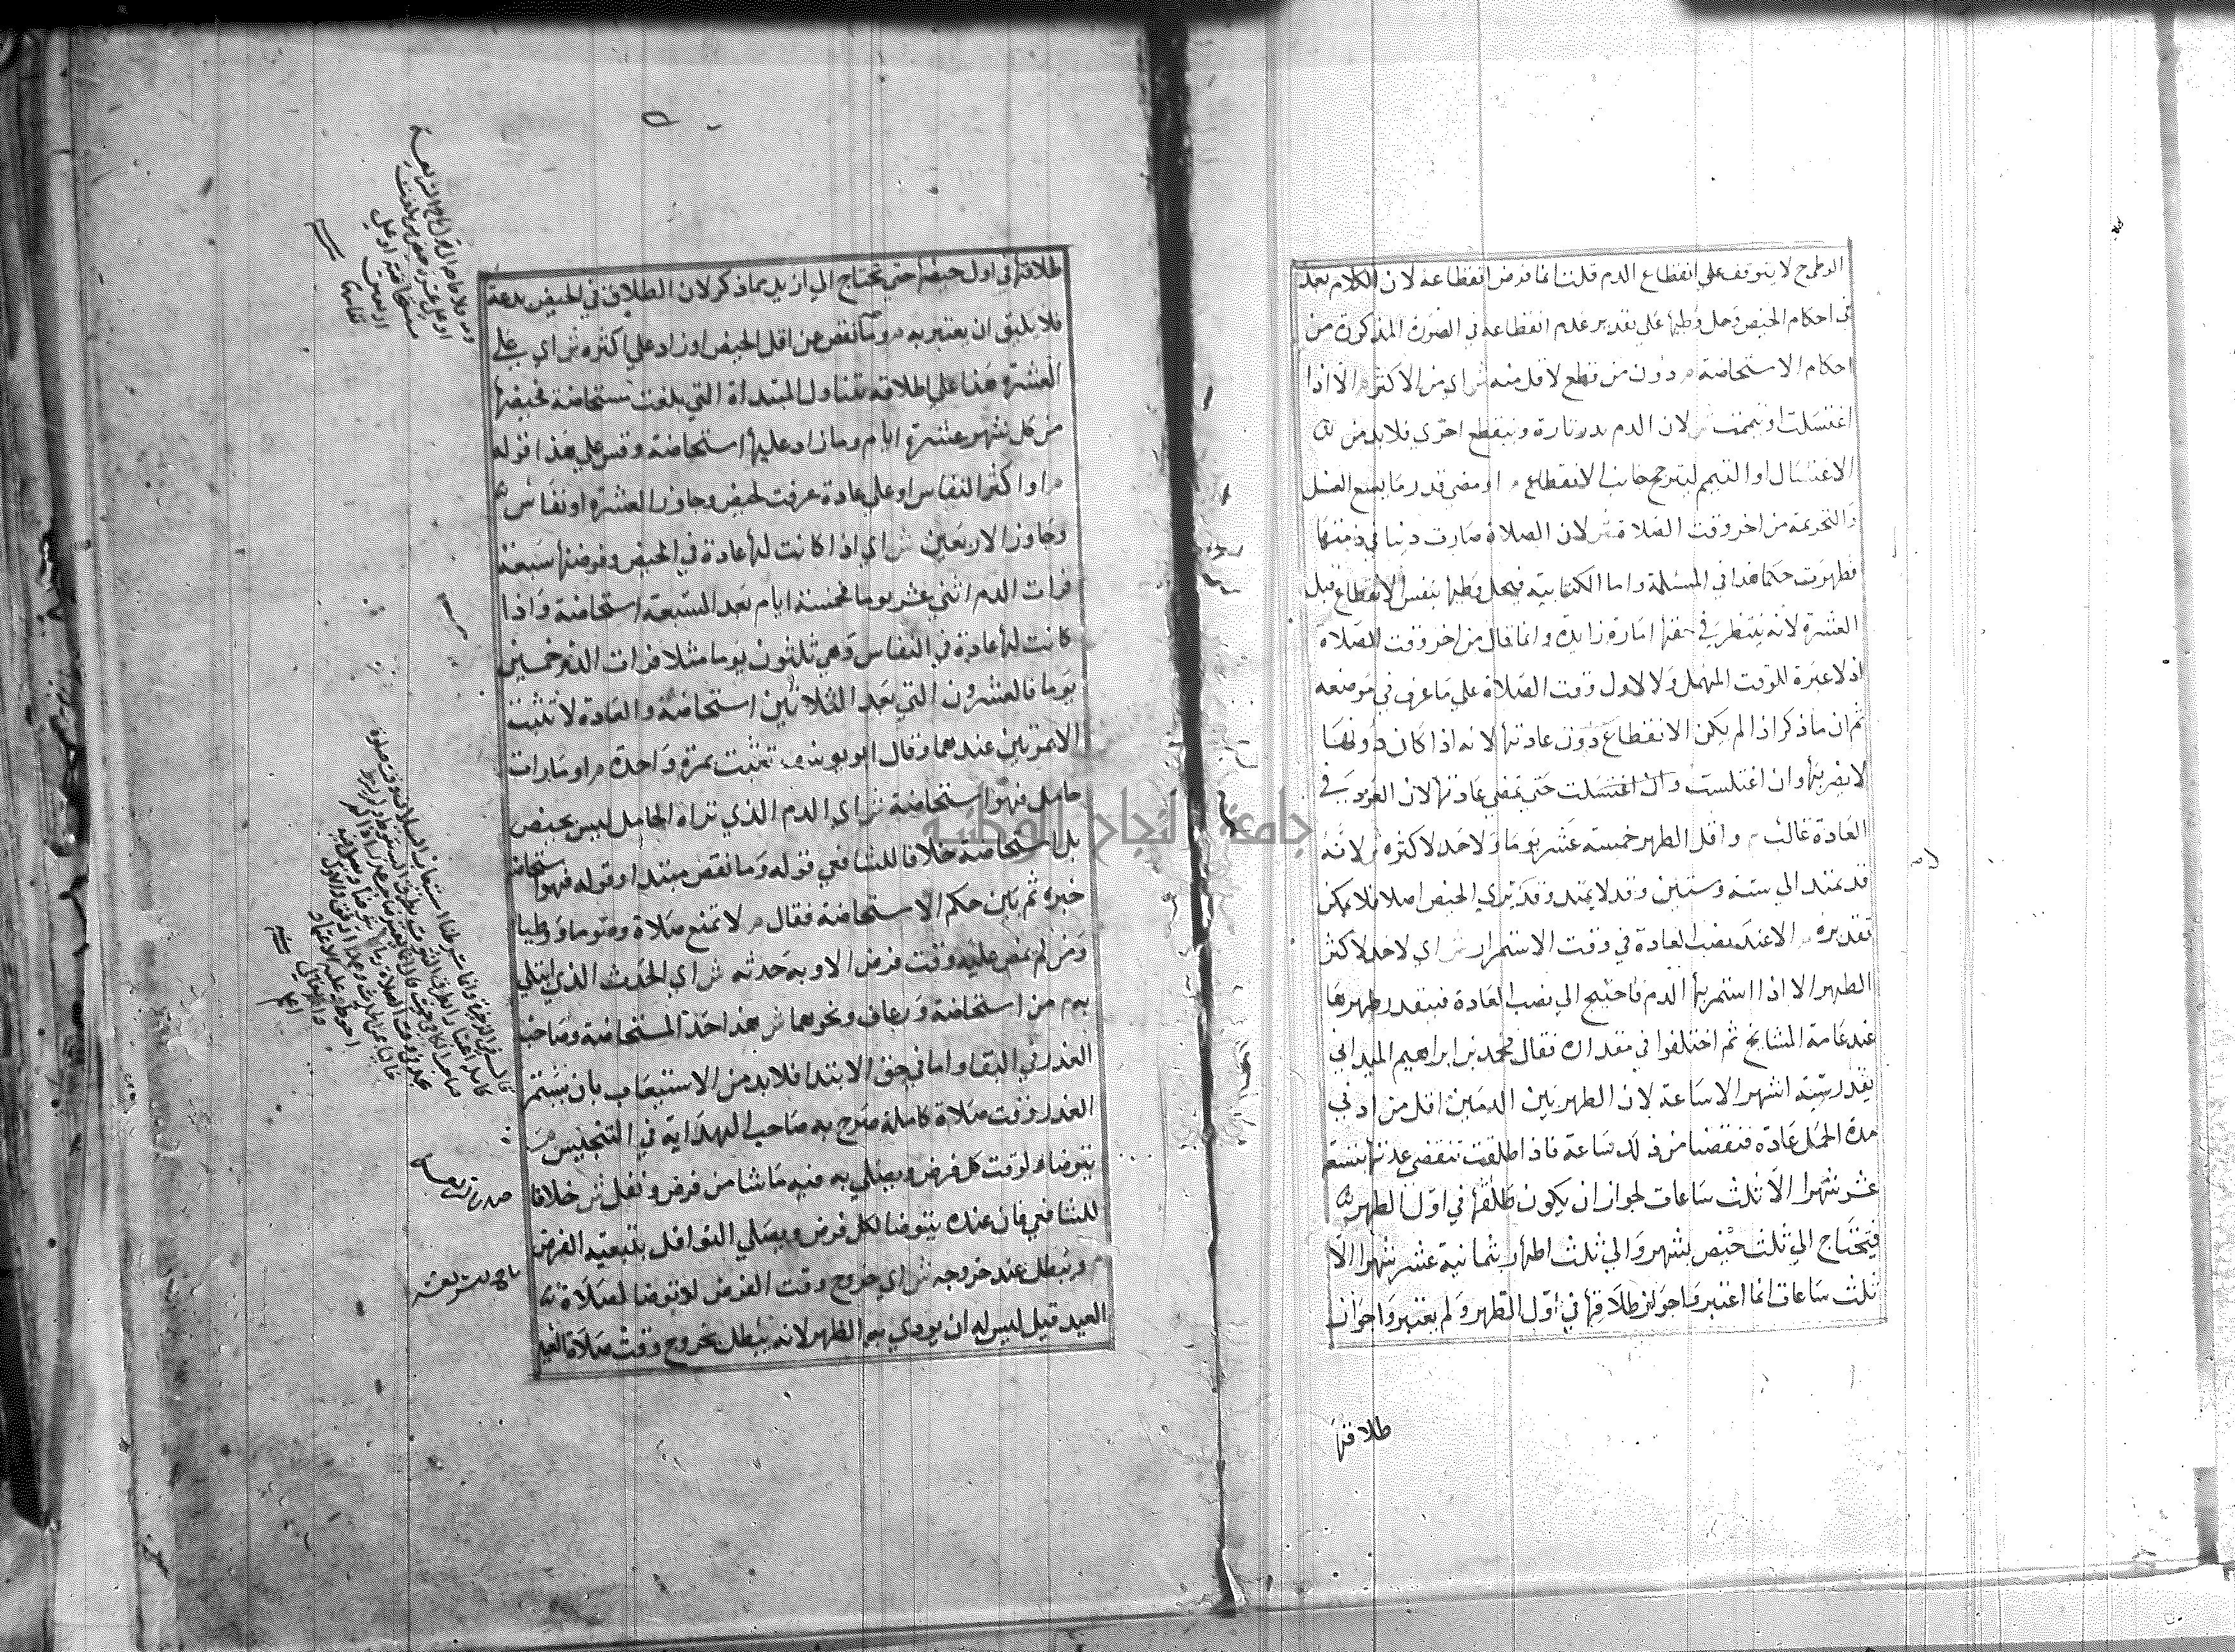 الوطئ ح لا يتوقف علي انقطاع الدم قلت انما فرض انقطاعه لان الكلام بعد
في احكام الحيض وحل وطيها علي تقدير عدم انقطاعه في الصورة المذكورة من
احكام الاستحاضة م دون من قطع لاقل منه ش اي من الاكثر م الا اذا
اغتسلت او تيممت ش لان الدم يدر تارة وينقطع اخري فلا بد من
الاغتسال او التيمم ليترجح جانب الانقطاع م او مضي قدر ما يسع الغسل
والتحريمة من اخر وقت الصلاة ش لان الصلاة صارت دينا في ذمتها
فطهرت حكما هذا في المسلمة واما الكتابية فيحل وطيها بنفس الانقطاع قبل
العشرة لانه ينتظر في حقها امارة زايدة وانما قال من اخر وقت الصلاة
اذ لا عبرة للوقت المهمل ولا لاول وقت الصلاة علي ما عرف في موضعه
ثم ان ما ذكر اذا لم يكن الانقطاع دون عادتها لانه اذا كان دونها
لا يقربها وان اغتلست وان اغتسلت حتي تمضي عادتها لان العود في
العادة غالب م واقل الطهر خمسة عشر يوما ولا حد لاكثره ش لانه
قد يمتد الي سنة وسنتين وقد لا يمتد وقد تري الحيض اصلا فلا يمكن
تقديره م الا عند نصب العادة في وقت الاستمرار ش اي لا حد لاكثر
الطهر الا اذا استمر بها الدم فاحتيج الي نصب العادة فيقدر طهرها
عند عامة المشايخ ثم اختلفوا في مقداره فقال محمد بن ابراهيم الميداني
يقدر ستة اشهر الا ساعة لان الطهر بين الدمين اقل من ادني
مدة الحمل عادة فنقصنا من ذلك ساعة فاذا طلقت تنقضي عدتها بتسعة
عشر شهرا الا ثلث ساعات لجواز ان يكون طلقها في اول الطهر
فيحتاج الي ثلث حيض بشهر والي ثلث اطهار بثمانية عشر شهرا الا
ثلث ساعات انما اعتبروا جواز طلاقها في اول الطهر ولم يعتبروا جواز
طلاقها
طلاقها في اول حيضها حتي تحتاج الي ازيد مما ذكر لان الطلاق في الحيض بدعة
فلا يليق ان يعتبر به م وما نقص عن اقل الحيض او زاد علي اكثره ش اي علي
العشرة هذا علي اطلاقه يتناول المبتدأة التي بلغت مستحاضة فحيضها
من كل شهر عشرة ايام وما زاد عليها استحاضة وقس علي هذا قوله
م او اكثر النفاس او علي عادة عرفت لحيض وجاوز العشرة او نفاس
وجاوز الاربعين ش اي اذا كانت لها عادة في الحيض وفرضناها سبعة
فرات الدم اثني عشر يوما فخمسة ايام بعد السبعة استحاضة واذا
كانت لها عادة في النفاس وهي ثلثون يوما مثلا فرات الدم خمسين
يوما فالعشرون التي بعد الثلاثين استحاضة والعادة لا تثبت
الا بمرتين عندهما وقال ابو يوسف تثبت بمرة واحدة م او مارات
حامل فهو استحاضة ش اي الدم الذي تراه الحامل ليس بحيض
بل استحاضة خلافا للشافعي قوله وما نقص مبتدا وقوله فهو استحاضة
خبره ثم بين حكم الاستحاضة فقال م لا تمنع صلاة وصوما ووطيا
ومن لم يمض عليه وقت فرض الا وبه حدثه ش اي الحدث الذي ابتلي
به م من استحاضة ورعاف ونحوهما ش هذا حد المستحاضة وصاحب
العذر في البقا واما في حق الابتدا فلا بد من الاستيعاب بان يستمر
العذر وقت صلاة كاملة صرح به صاحب الهداية في التجنيس
يتوضا لوقت كل فرض ويصلي به فيه ما شا من فرض ونفل ش خلافا
للشافعي فان عنده يتوضا لكل فرض ويصلي النوافل بتبعية الفرض
م ويبطل عند خروجه ش اي خروج وقت الفرض لا توضا لصلاة
العيد قيل ليس له ان يودي به الظهر لانه يبطل بخروج وقت صلاة العيد
صدر الشريعة
تاج الشريعة
جامعة النجاح الوطنية